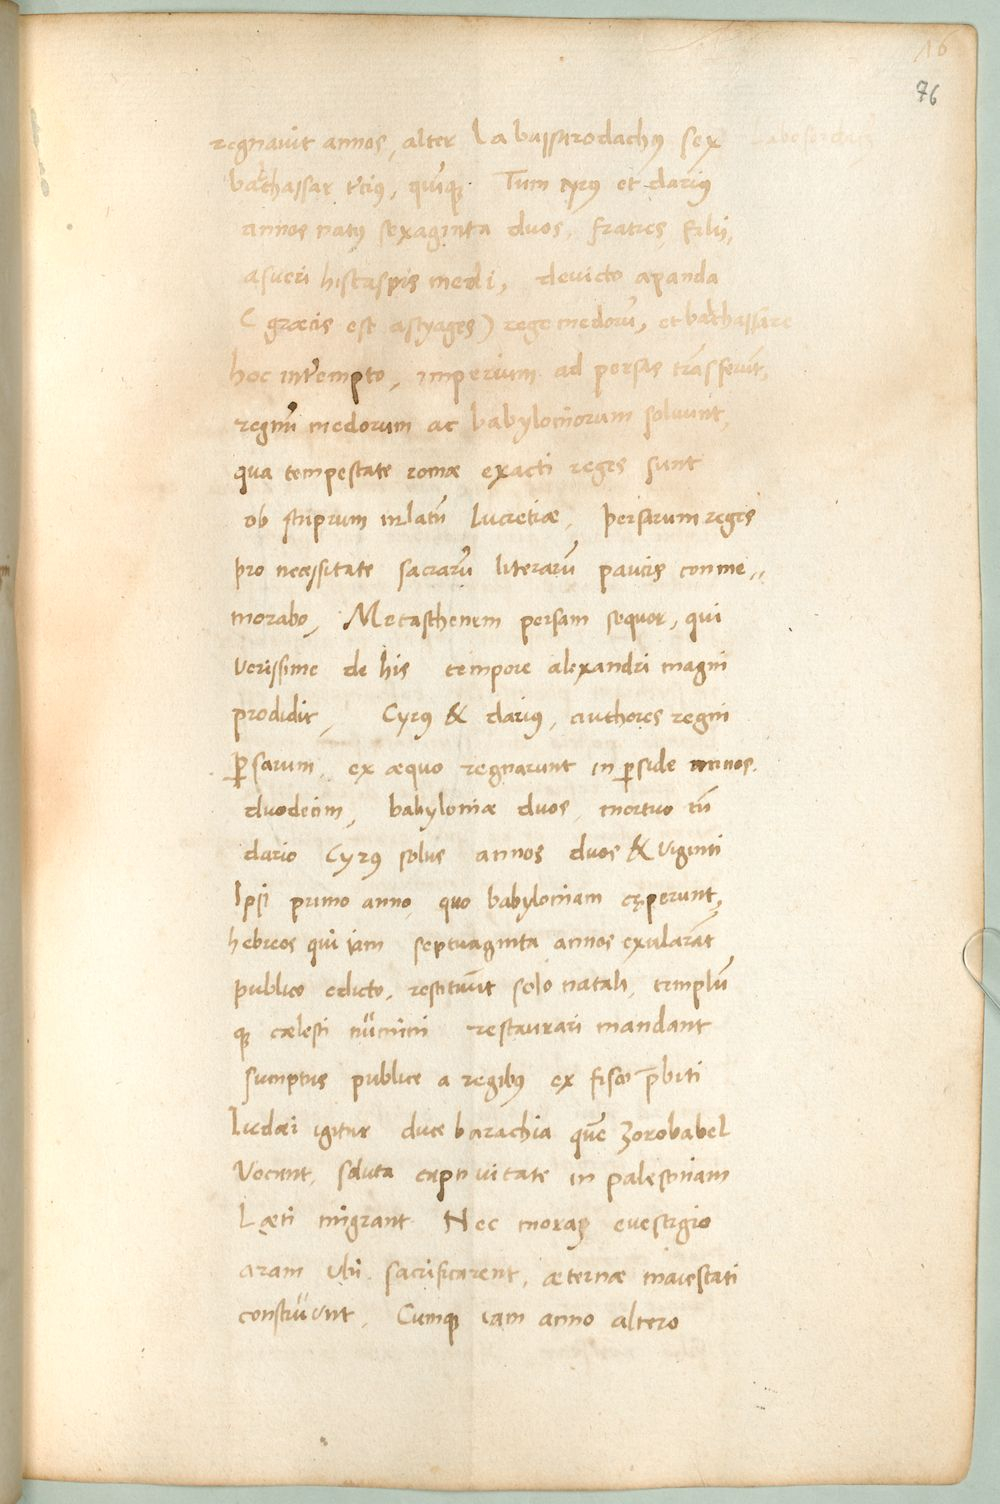 16
76
regnavit annos, alter Labassarodachus sex
balthassar t'cius, quīq. Tum Cyrus et darius
annos natus sexaginta duos, fratres, filii,
asueri histaspis medi, devicto apanda
(græcis est astyages) rege medorū, et balthassare
hoc int'empto, imperium ad persas trāsferūt,
regnū medorum ac babyloniorum soluunt,
qua tempestate romæ exacti reges sunt
ob stuprum inlatū lucretiæ, persarum reges
pro necessitate sacrarū literarū paucis conme,,
morabo, Metasthenem persam sequor, qui
verissime de his tempore alexandri magni
prodidit, Cyrus & darius, authores regni
ꝑsarum, ex æquo regnarunt in ꝑside annos.
duodecim, babyloniæ duos, mortuo tū
dario Cyrus solus annos duos & viginti
Ipsi primo anno, quo babyloniam cęperunt,
hebreos qui iam septuaginta annos exularāt
publico edicto, restituūt solo natali, templū
q; cælesti nūmini restaurari mandant
sumptus publice a regibus ex fisco p̄biti
Iudæi igitur duce barachia quē Zorobabel
vocant, soluta captivitate in palestinam
Læti migrant Nec moraq; evestigio
aram ubi sacrificarent, æternæ maiestati
construunt, Cumq; iam anno altero